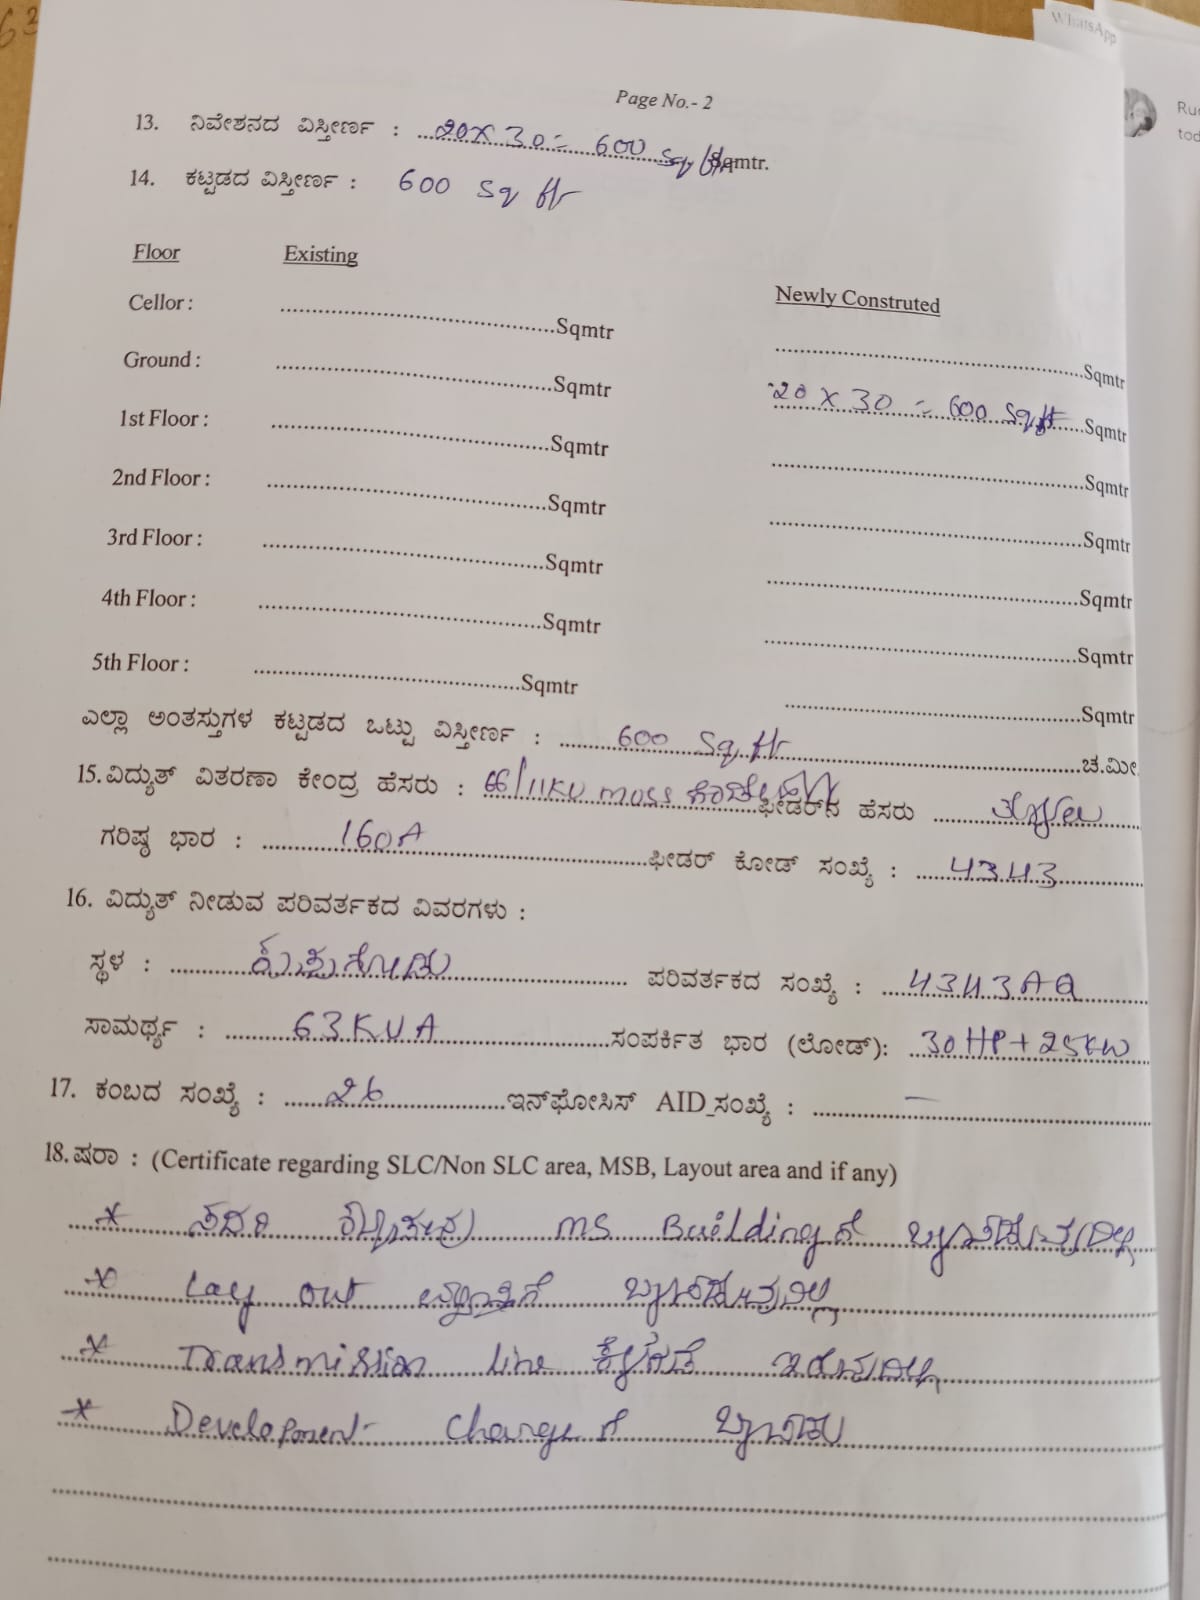 63
WhatsApp
Page No.- 2
13. ನಿವೇಶನದ ವಿಸ್ತೀರ್ಣ : 20 x 30 = 600 Sq ft Sqmtr.
14. ಕಟ್ಟಡದ ವಿಸ್ತೀರ್ಣ : 600 Sq ft
Floor Existing Newly Construted
Cellor : Sqmtr Sqmtr
Ground : Sqmtr 20 x 30 = 600 Sqft Sqmtr
1st Floor : Sqmtr Sqmtr
2nd Floor : Sqmtr Sqmtr
3rd Floor : Sqmtr Sqmtr
4th Floor : Sqmtr Sqmtr
5th Floor : Sqmtr Sqmtr
ಎಲ್ಲಾ ಅಂತಸ್ತುಗಳ ಕಟ್ಟಡದ ಒಟ್ಟು ವಿಸ್ತೀರ್ಣ : 600 Sq ft ಚ.ಮೀ.
15. ವಿದ್ಯುತ್ ವಿತರಣಾ ಕೇಂದ್ರ ಹೆಸರು : 66/11KV MUSS ಫೀಡರ್‌ನ ಹೆಸರು
ಗರಿಷ್ಠ ಭಾರ : 160A ಫೀಡರ್ ಕೋಡ್ ಸಂಖ್ಯೆ : 4343
16. ವಿದ್ಯುತ್ ನೀಡುವ ಪರಿವರ್ತಕದ ವಿವರಗಳು :
ಸ್ಥಳ : ಪರಿವರ್ತಕದ ಸಂಖ್ಯೆ : 4343AQ
ಸಾಮರ್ಥ್ಯ : 63KVA ಸಂಪರ್ಕಿತ ಭಾರ (ಲೋಡ್): 30HP + 25KW
17. ಕಂಬದ ಸಂಖ್ಯೆ : 26 ಇನ್‌ಫೋಸಿಸ್ AID_ಸಂಖ್ಯೆ : —
18. ಷರಾ : (Certificate regarding SLC/Non SLC area, MSB, Layout area and if any)
* ಸದರಿ MS Buildingಗೆ ಒಳಪಡುವುದಿಲ್ಲ
* Lay out ವ್ಯಾಪ್ತಿಗೆ ಒಳಪಡುವುದಿಲ್ಲ
* Transmission line ಕೆಳಗಡೆ ಇರುವುದಿಲ್ಲ
* Development Chargeಗೆ ಒಳಪಡು